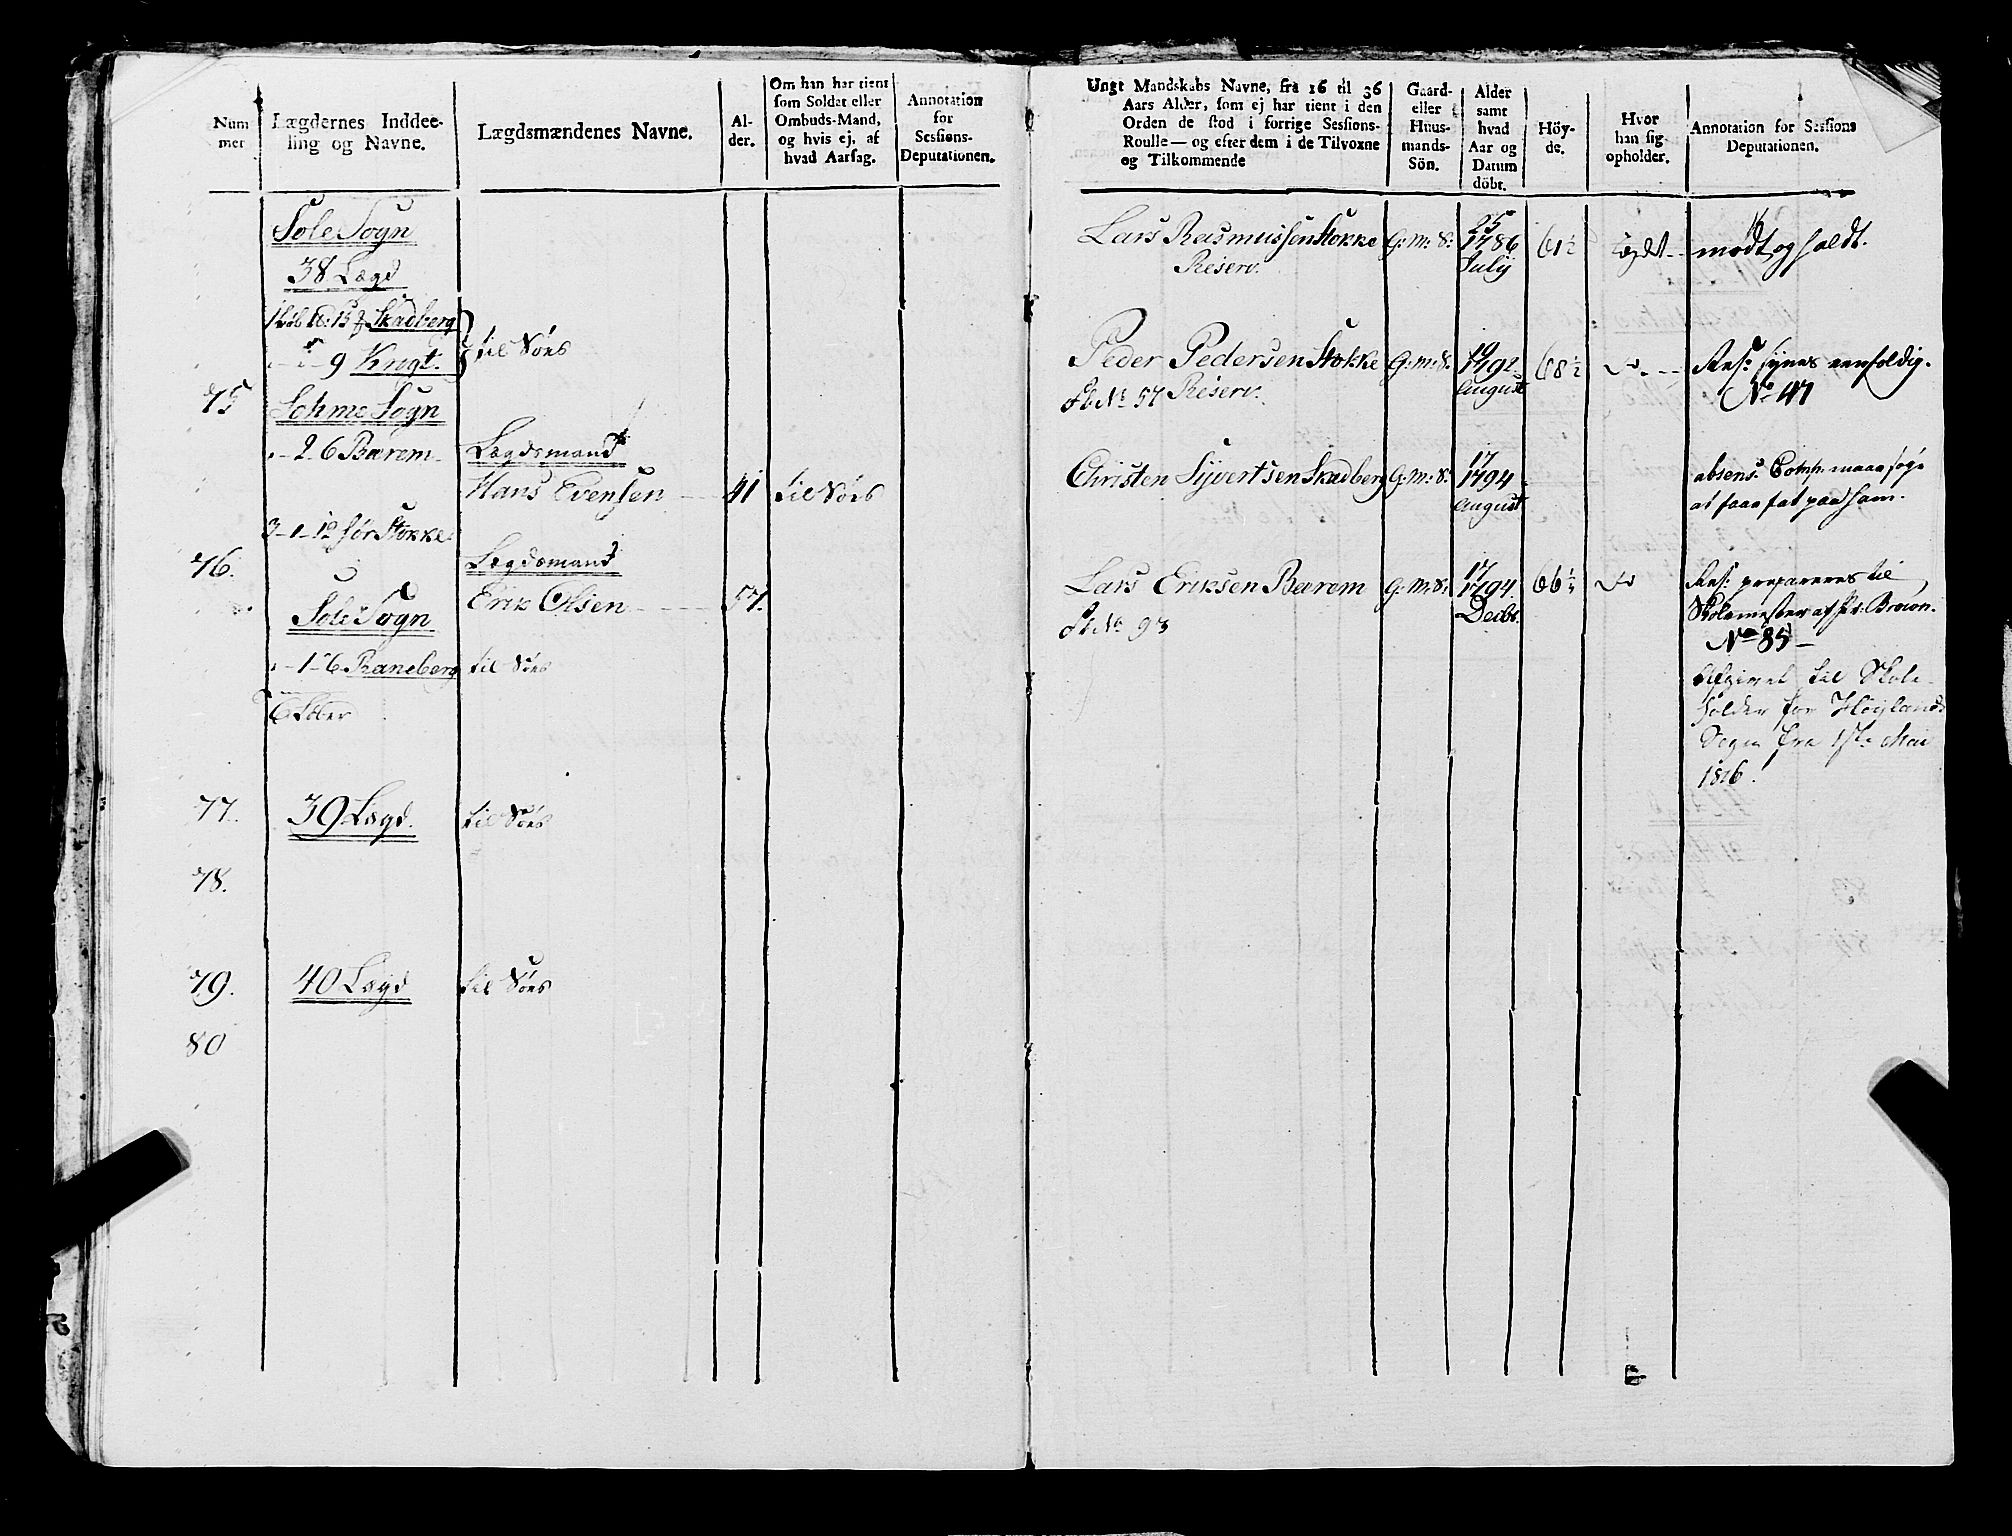 Num
mer
Lægdernes Inddee-
ling og Navne.
Lægdsmændenes Navne.
Al-
der.
Om han har tient
som Soldat eller
Ombuds-Mand,
og hvis ej, af
hvad Aarsag.
Annotation
for
Sessions-
Deputationen.
Sole Sogn
38 Lægd
Skadberg
9 Krogt.
til Søes
75
Sohme Sogn
2 6 Bærem
Lægdsmand
Hans Evensen 41 til Søes
3-1-12 Sør Stokke
76.
Lægdsmand
Erik Olsen 57.
Sole Sogn
1-6 Raneberg til Søes
77. 39 Lægd. til Søes
78.
79. 40 Lægd til Søes
80
Ungt Mandskabs Navne, fra 16 til 36
Aars Alder, som ej har tient i den
Orden de stod i forrige Sessions-
Roulle — og efter dem i de Tilvoxne
og Tilkommende
Gaard-
eller
Huus-
mands-
Sön.
Alder
samt
hvad
Aar og
Datum
döbt.
Höy-
de.
Hvor
han sig
opholder.
Annotation for Sessions
Deputationen.
Lars Rasmussen Stokke G: M: S: 25 1786 July 61½ Lægdt mødt og holdt.
Reserv.
Peder Pedersen Stokke G: m: S: 19 1792 August 68½ Do Ans: synes eenfoldig.
No 57 Reserv. No 47
Christen Syvertsen Skadberg G: M: S: 17 1794 August absens. Comp: maae søge
at faae fat paa ham.
Lars Eriksen Bærem G: M: S: 17 1794. Decbr. 66½ Do Ans: præpareres til
No 93 Skolemester af Pr: Bruun.
No 85
Afgivet til Skole-
holder for Høylands
Sogn fra 1ste Mai
1816.